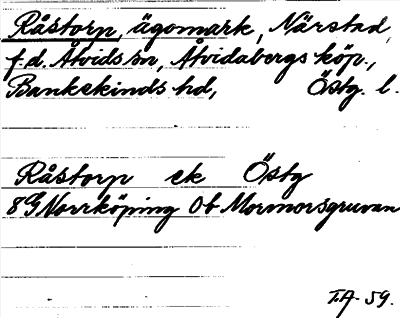 Råstorp, ägomark, Närstad,
f.d. Åtvids sn, Åtvidabergs köp.,
Bankekinds hd, Östg. l.
Råstorp ek Östg
8G Norrköping 0b Mormorsgruvan
T.A. 59.